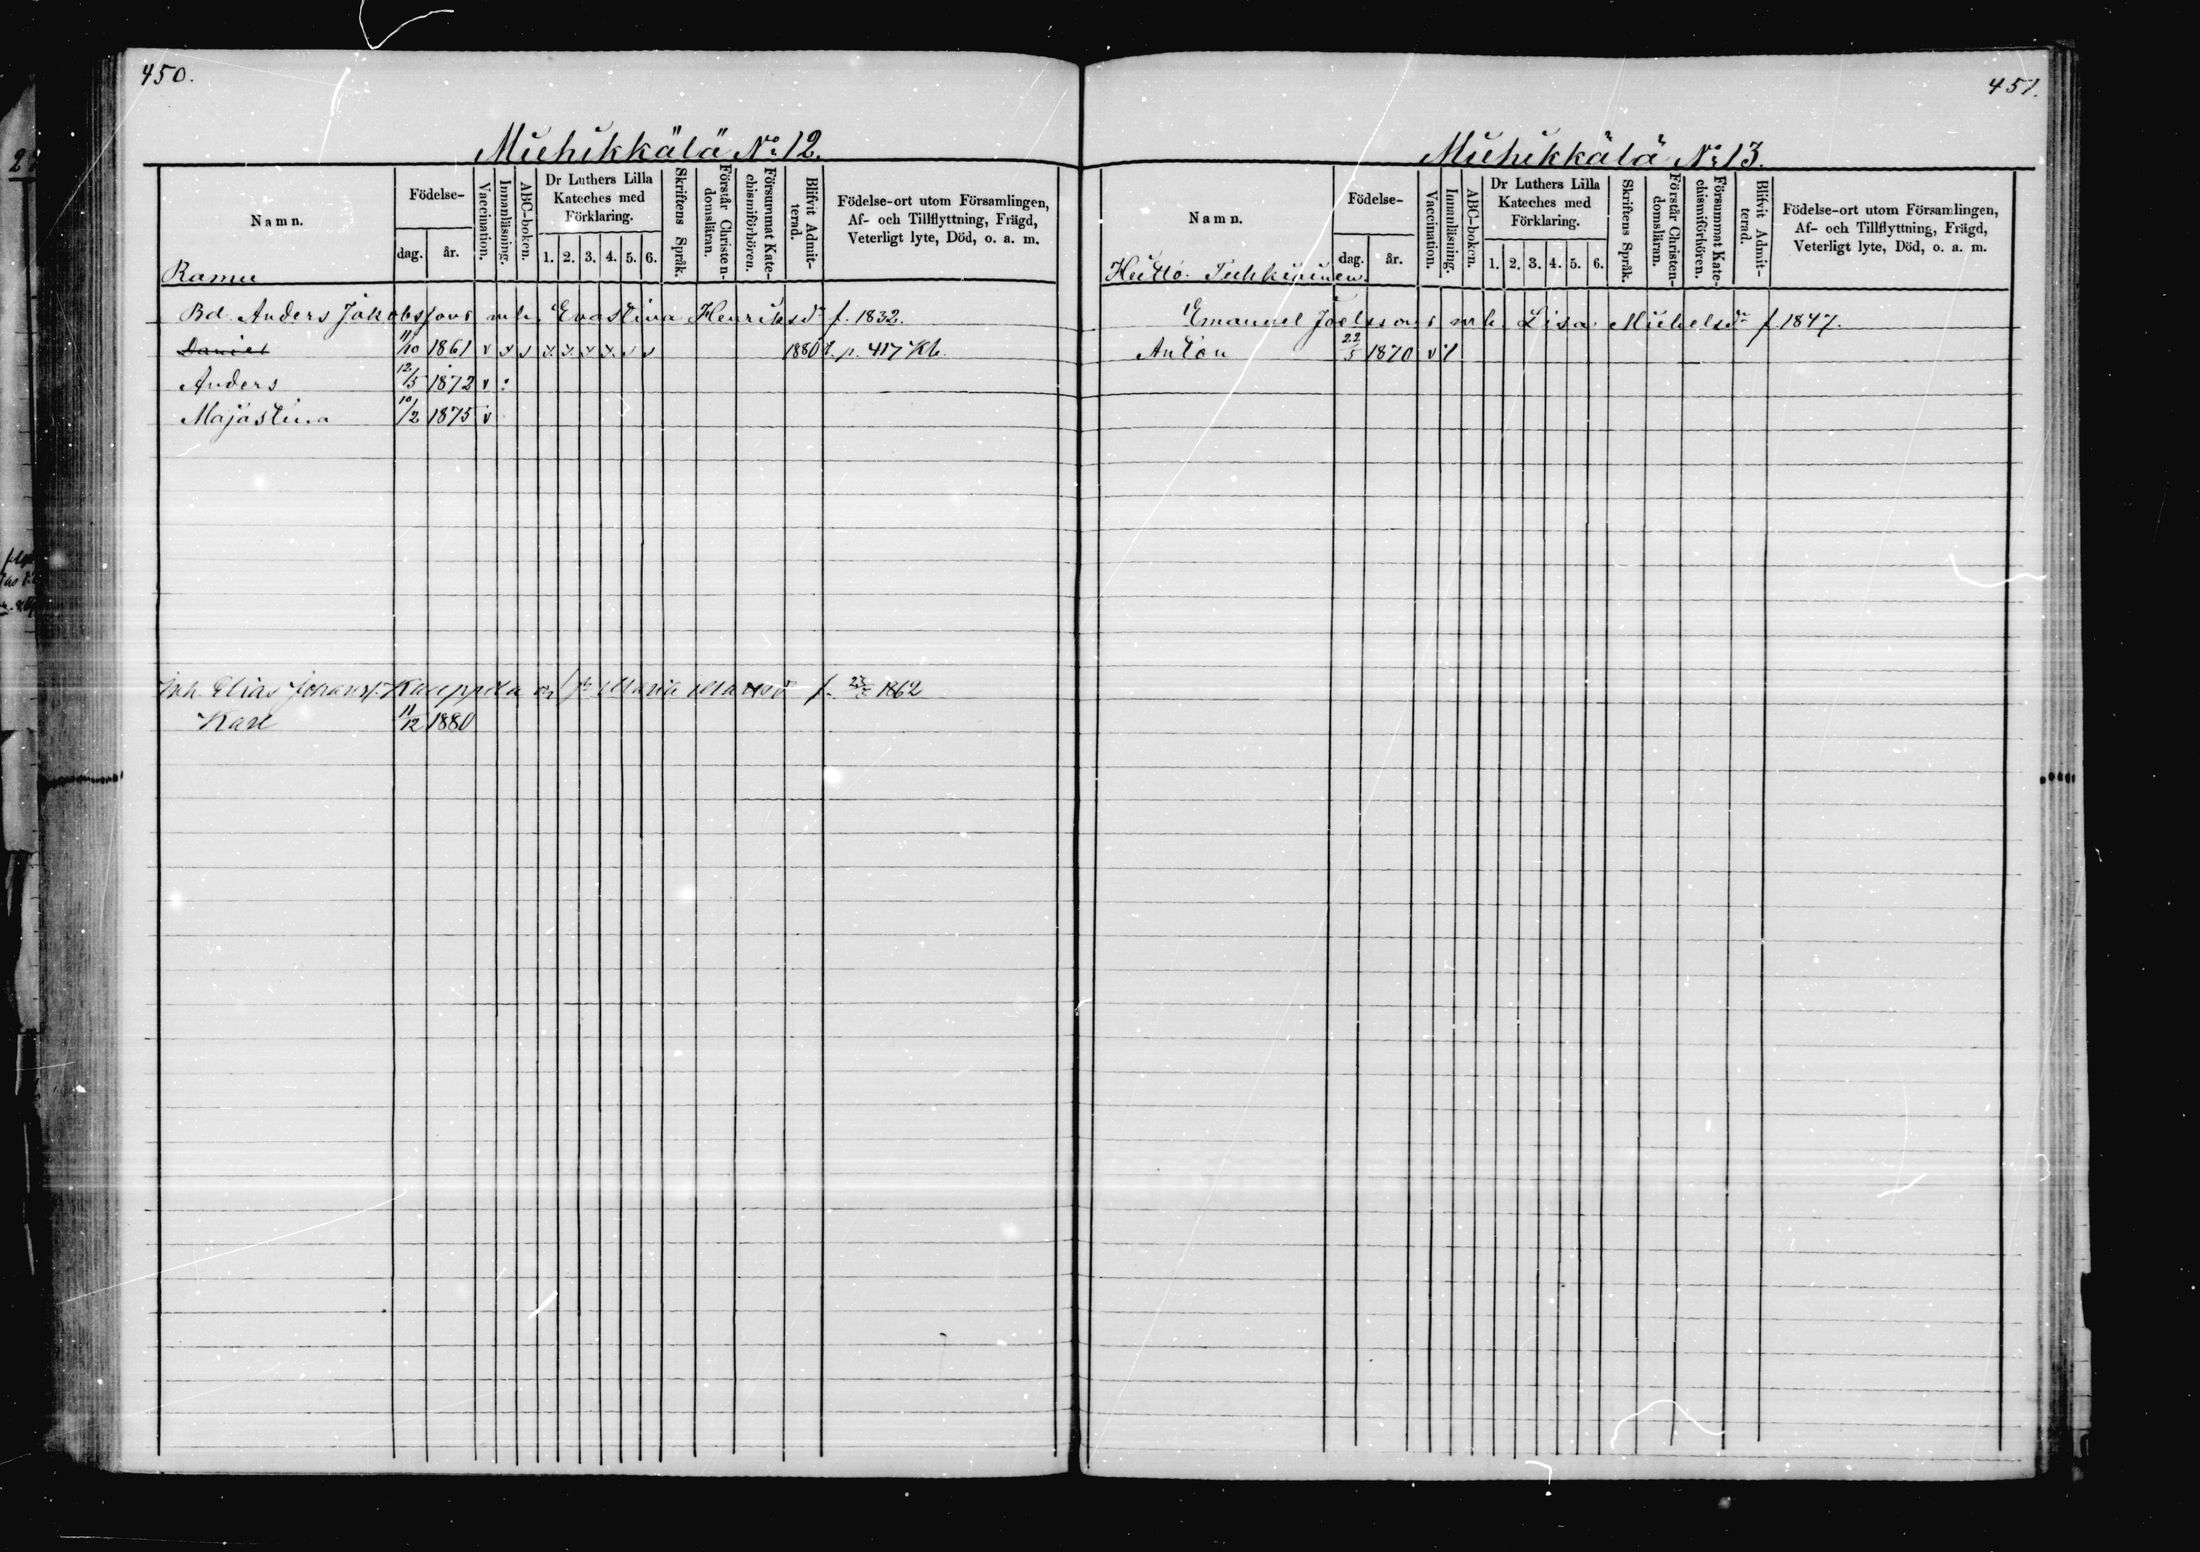 450.
Miehikkälä No 12.
Namn.
Födelse-
dag.
år.
Vaccination.
Innanläsning.
ABC-boken.
Dr Luthers Lilla
Kateches med
Förklaring.
1. 2. 3. 4. 5. 6.
Skriftens Språk.
Förstår Christen-
domsläran.
Försummat Kate-
chismiförhören.
Blifvit Admit-
terad.
Födelse-ort utom Församlingen,
Af- och Tillflyttning, Frägd,
Veterligt lyte, Död, o. a. m.
Ramu
Bd. Anders Jakobssons mh. Evastina Henriksdr f. 1832.
Daniel 11/10 1861 v x v x x x x v v 1880 p. 417 Kb.
Anders 12/5 1872 v
Majastina 10/2 1875 v
Inh. Elias Johans. Kaleppila Maria f. 1862
Karl 11/12 1880
451.
Miehikkälä No 13.
Namn.
Födelse-
dag.
år.
Vaccination.
Innanläsning.
ABC-boken.
Dr Luthers Lilla
Kateches med
Förklaring.
1. 2. 3. 4. 5. 6.
Skriftens Språk.
Förstår Christen-
domsläran.
Försummat Kate-
chismiförhören.
Blifvit Admit-
terad.
Födelse-ort utom Församlingen,
Af- och Tillflyttning, Frägd,
Veterligt lyte, Död, o. a. m.
Heitto. Tuhkuinen.
Emanuel Joelssons mh. Lisa Michelsdr f. 1847.
Anton 22/5 1870 v